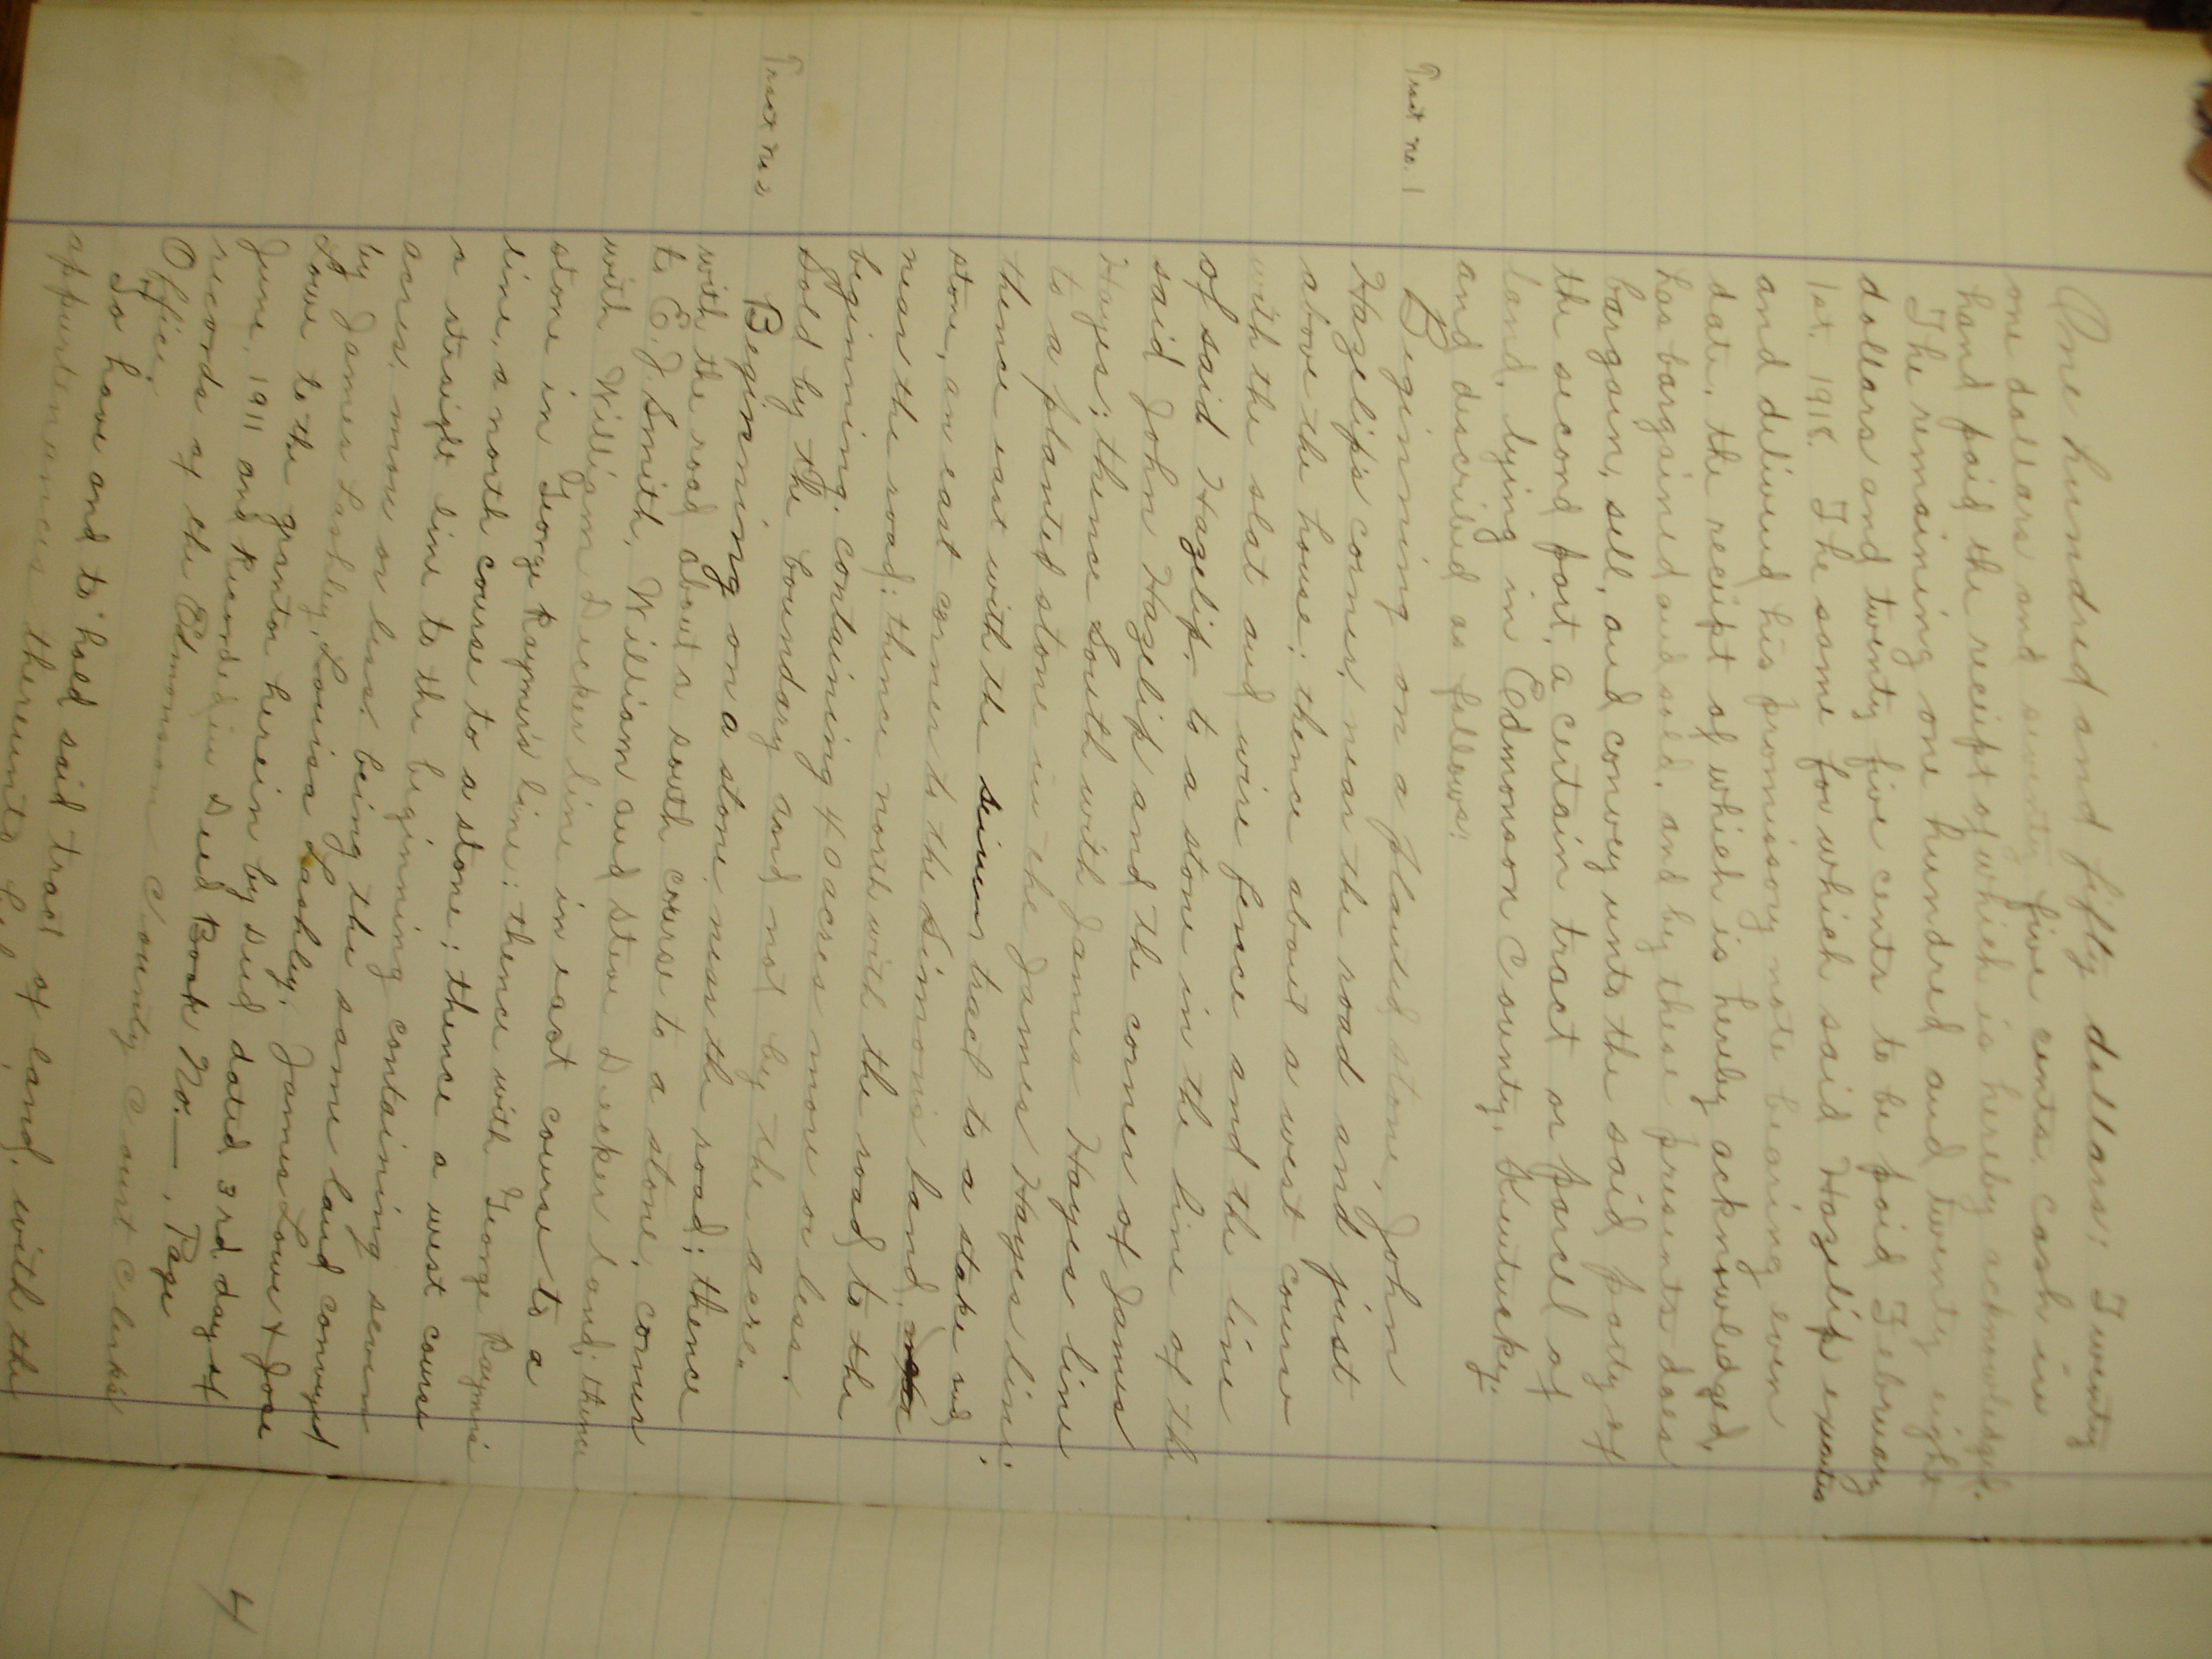 One hundred and fifty dollars: Twenty
one dollars and seventy five cents, cash in
hand paid the receipt of which is hereby acknowledged.
The remaining one hundred and twenty eight
dollars and twenty five cents to be paid February
1st. 1918. The same for which said Hazelip executes
and delivered his promissory note bearing even
date, the receipt of which is hereby acknowledged,
has bargained and sold, and by these presents does
bargain, sell, and convey unto the said party of
the second part, a certain tract or parcel of
land, lying in Edmonson County, Kentucky,
and described as follows:
Tract no. 1
Beginning on a planted stone, John
Hazelip's corner, near the road and just
above the house; thence about a west course
with the slat and wire fence and the line
of said Hazelip, to a stone in the line of the
said John Hazelip and the corner of James
Hayes; thence South with James Hayes line
to a planted stone in the James Hayes line;
thence east with the seven tract to a stake and
stone, an east corner to the Simmons land,
near the road; thence north with the road to the
beginning, containing 40 acres more or less.
Sold by the boundary and not by the acre.
Tract no 2
Beginning on a stone near the road; thence
with the road about a south course to a stone, corner
to E. J. Smith, William and Steve Decker land; thence
with William Decker line in east course to a
stone in George Raymer's line; thence with George Raymer's
line, a north course to a stone; thence a west course
a straight line to the beginning containing seven
acres, more or less, being the same land conveyed
by James Lashley, Louisa Lashley, James Lowe & Jose
Lowe to the grantor herein by Deed dated 3rd. day of
June, 1911 and Recorded in Deed Book No. —, Page
records of the Edmonson County Court Clerk's
Office.
To have and to hold said tract of land, with the
appurtenances thereunto
4